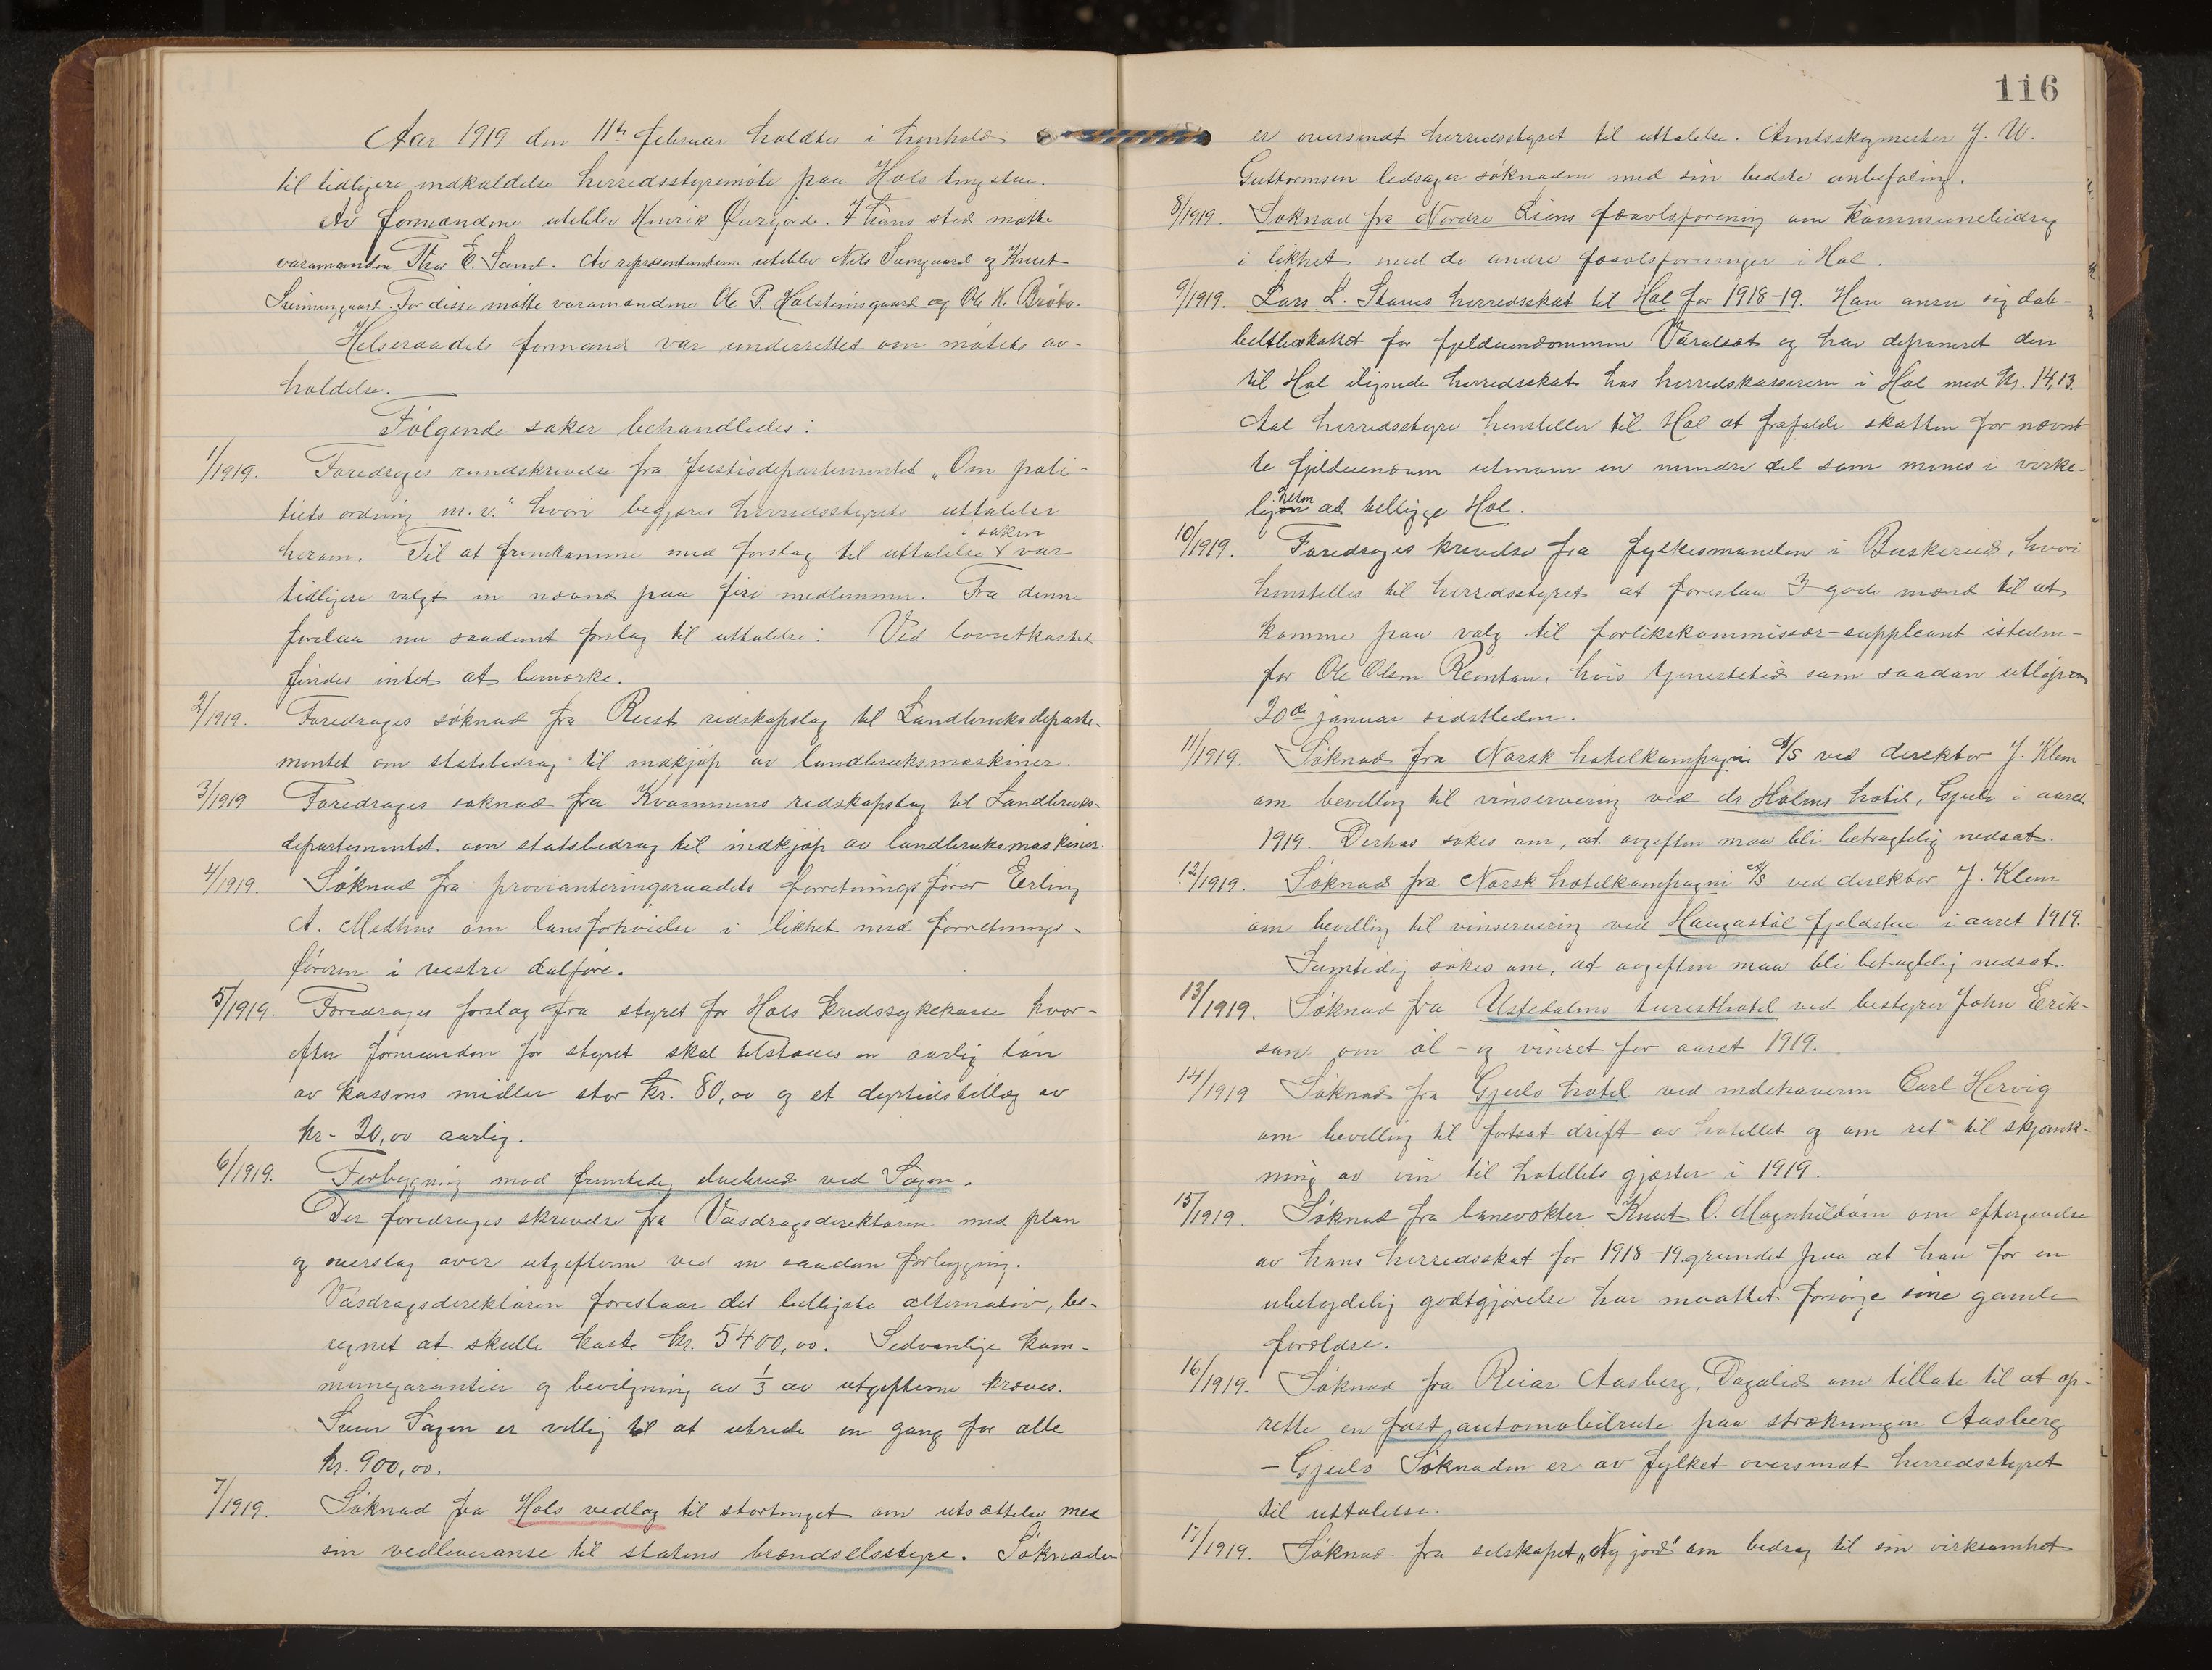 Aar 1919 den 11te februar holdtes i henhold
til tidligere indkaldelse herredsstyremöte paa Hols tingstue.
Av formændene uteblev Henrik Övrejorde. I hans sted mötte
varamanden Thor E. Sand. Av repræsentanterne uteblev Nils Sungaard og Knut
Sveinungaard. For disse mötte varamændene Ole P. Holsteinsgaard og Ole K. Bröto.
Helseraadets formand var underrettet om mötets av-
holdelse.
Følgende saker behandledes:
1/1919. Foredroges rundskrivelse fra Justisdepartementet „Om poli-
tiets ordning m. v." hvori begjæres herredsstyrets uttalelser
i saken
herom. Til at fremkomme med forslag til uttalelse var
tidligere valgt en nævnd paa fire medlemmer. Fra denne
forelaa nu saadant forslag til uttalelse: Ved lovutkastet
findes intet at bemerke.
2/1919. Foredroges söknad fra Rust redskapslag til Landbruksdeparte-
mentet om statsbidrag til indkjöp av landbruksmaskiner.
3/1919 Foredroges söknad fra Kvammens redskapslag til Landbruks-
departementet om statsbidrag til indkjöp av landbruksmaskiner.
4/1919. Söknad fra provianteringsraadets forretningsförer Erling
A. Medhus om lønsforhöielse i likhet med forretnings-
föreren i vestre dalföre.
5/1919. Foredroges forslag fra styret for Hols kredssykekasse hvor-
efter formanden for styret skal tilstaaes en aarlig løn
av kassens midler stor kr. 80,00 og et dyrtidstillæg av
kr. 20,00 aarlig.
6/1919. Forbygning mod fremtidig elvebrud ved Sögen.
Der foredroges skrivelse fra Vasdragsdirektören med plan
og overslag over utgifterne ved en saadan forbygging.
Vasdragsdirektören foreslaar det billigste alternativ, be-
regnet at skulle koste kr. 5400,00. Sedvanlige kom-
munegarantier og bevilgning av 1/3 av utgifterne kræves.
Svein Sögen er villig til at utrede en gang for alle
kr. 900,00.
7/1919. Söknad fra Hols vedlag til stortinget om utsættelse med
sin vedleveranse til statens brændselsstyre. Söknaden
116
er oversendt herredsstyret til uttalelse. Amtsskogmester J. W.
Guttormsen ledsager söknaden med sin bedste anbefaling.
8/1919. Söknad fra Nordre Liens fæavlsforening om kommunebidrag
i likhet med de andre fæavlsforeninger i Hol.
9/1919. Lars L. Skaus herredsskat til Hol for 1918-19. Han anser sig dob-
beltbeskattet for fjeldeiendommen Vöralsæt og har deponeret den
til Hol ilignede herredsskat hos herredskassereren i Hol med Kr. 14,13.
Aal herredsstyre henstiller til Hol at frafalde skatten for nævn-
te fjeldeiendom utenom en mindre del som menes i virke-
heten
lig at tilligge Hol.
10/1919. Foredroges skrivelse fra fylkesmanden i Buskerud, hvori
henstilles til herredsstyret at foreslaa 3 gode mænd til at
komme paa valg til forlikskommissær-suppleant isteden-
for Ole Olsen Reintan, hvis tjenestetid som saadan utløp
20de januar sidstleden.
11/1919. Söknad fra Norsk hotelkompagni A/S ved direktör J. Klem
om bevilling til vinservering ved dr. Holms hotel, Gjeilo i aaret
1919. Derhos sökes om, at avgiften maa bli betragtelig nedsat.
12/1919. Söknad fra Norsk hotelkompagni A/S ved direktör J. Klem
om bevilling til vinservering ved Haugastöl fjeldstue i aaret 1919.
Samtidig sökes om, at avgiften maa bli betragtelig nedsat.
13/1919. Söknad fra Ustedalens turisthotel ved bestyrer John Erik-
sen om öl- og vinret for aaret 1919.
14/1919 Söknad fra Gjeilo hotel ved indehaveren Carl Hervig
om bevilling til fortsat drift av hotellet og om ret til skjænk-
ning av vin til hotellets gjæster i 1919.
15/1919. Söknad fra banevokter Knut O. Magnhildöen om eftergivelse
av hans herredsskat for 1918-19 grundet paa at han for en
ubetydelig godtgjörelse har maattet forsörge sine gamle
forældre.
16/1919. Söknad fra Reiar Aasberg, Dagalid om tillate til at op-
rette en fast automobilrute paa strækningen Aasberg
- Gjeilo. Söknaden er av fylket oversendt herredsstyret
til uttalelse.
17/1919. Söknad fra selskapet „Ny jord" om bedrag til sin virksomhet